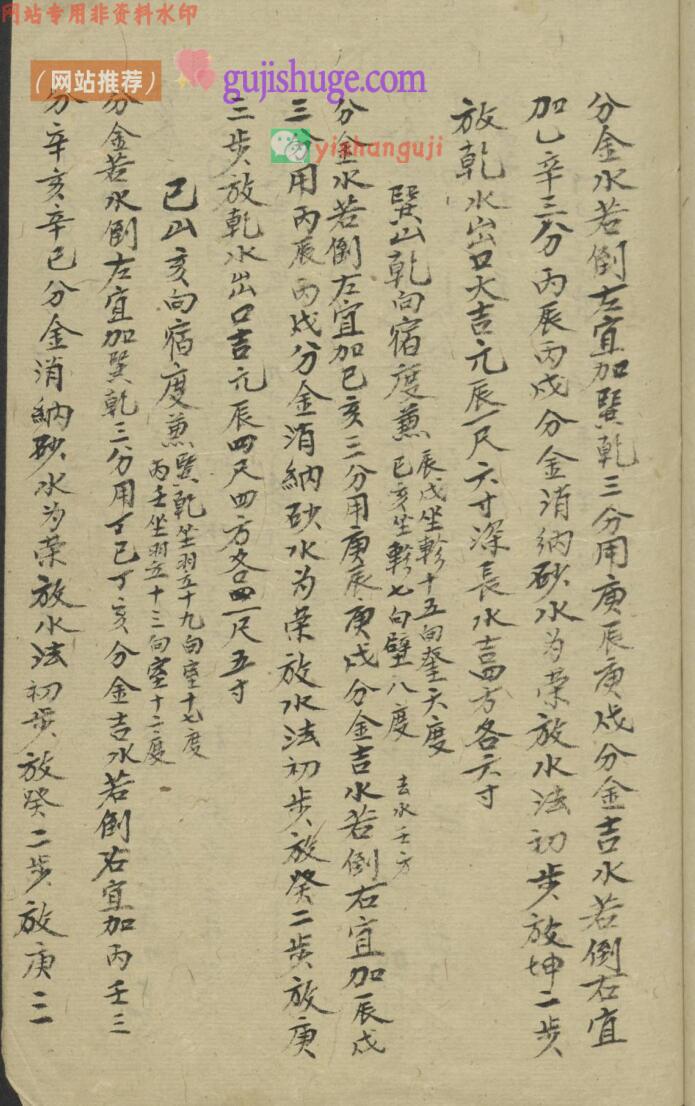 网站专用非资料水印
（网站推荐）
gujishuge.com
yishanguji
分金水若倒左宜加巽乾三分用庚辰庚戌分金吉水若倒右宜
加乙辛三分丙辰丙戌分金消納砂水为荣放水法初步放坤二步
放乾水出口大吉元辰一尺六寸深長水吉四方各六寸
巽山乾向宿度兼
辰戌坐軫十五向奎六度
已亥坐軫七向壁八度
去水壬方
分金水若倒左宜加已亥三分用庚辰庚戌分金吉水若倒右宜加辰戌
三分用丙辰丙戌分金消納砂水为荣放水法初步放癸二步放庚
三步放乾水出口吉元辰四尺四方各一尺五寸
已山亥向宿度兼
巽乾坐翌十九向室十七度
丙壬坐翌十三向室十二度
分金若水倒左宜加巽乾三分用丁已丁亥分金吉水若倒右宜加丙壬三
分辛亥辛已分金消納砂水为荣放水法初步放癸二步放庚三